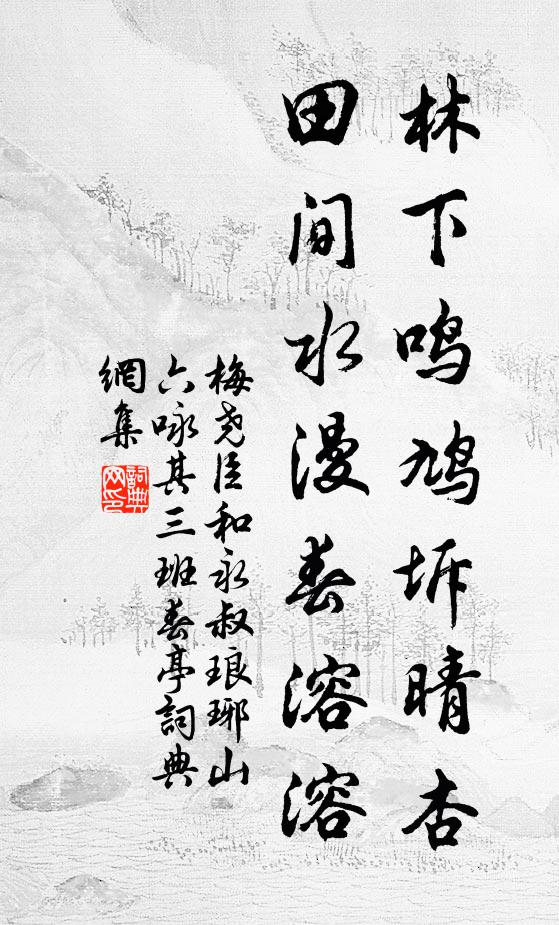 林下鸣鸠坼晴杏
田间水漫春溶溶
梅尧臣和永叔琅琊山
六咏其三班春亭詞典
網集
詞典
网印